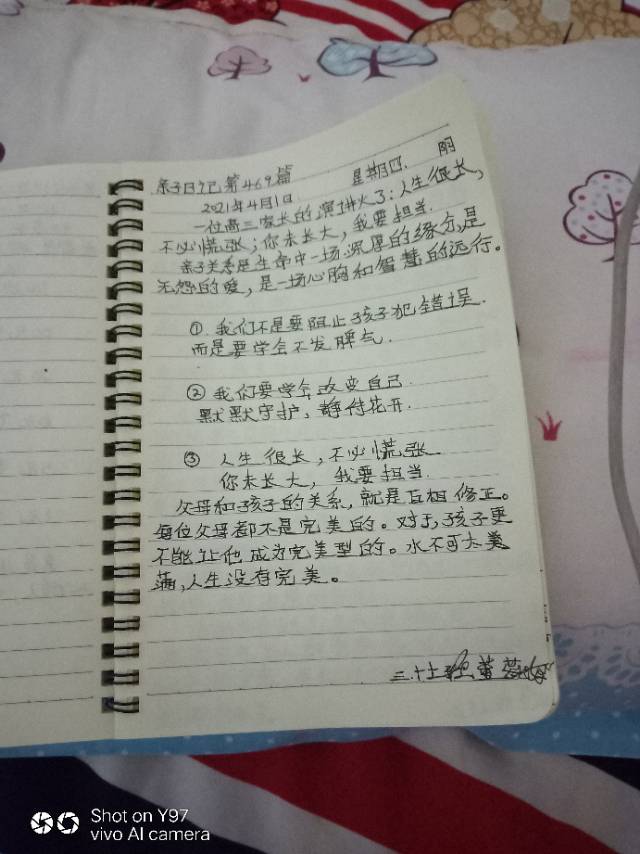 亲子日记第469篇
2021年4月1日 星期四 阴
一位高三家长的演讲火了:人生很长,
不必慌张;你未长大,我要担当.
亲子关系是生命中一场深厚的缘分,是
无怨的爱,是一场心胸和智慧的远行。
① 我们不是要阻止孩子犯错误.
而是要学会不发脾气.
② 我们要学会改变自己.
默默守护,静待花开.
③ 人生很长,不必慌张
你未长大,我要担当
父母和孩子的关系,就是互相修正。
每位父母都不是完美的。对于,孩子更
不能让他成为完美型的。水不可太美
满,人生没有完美。
三.十
Shot on Y97
vivo AI camera